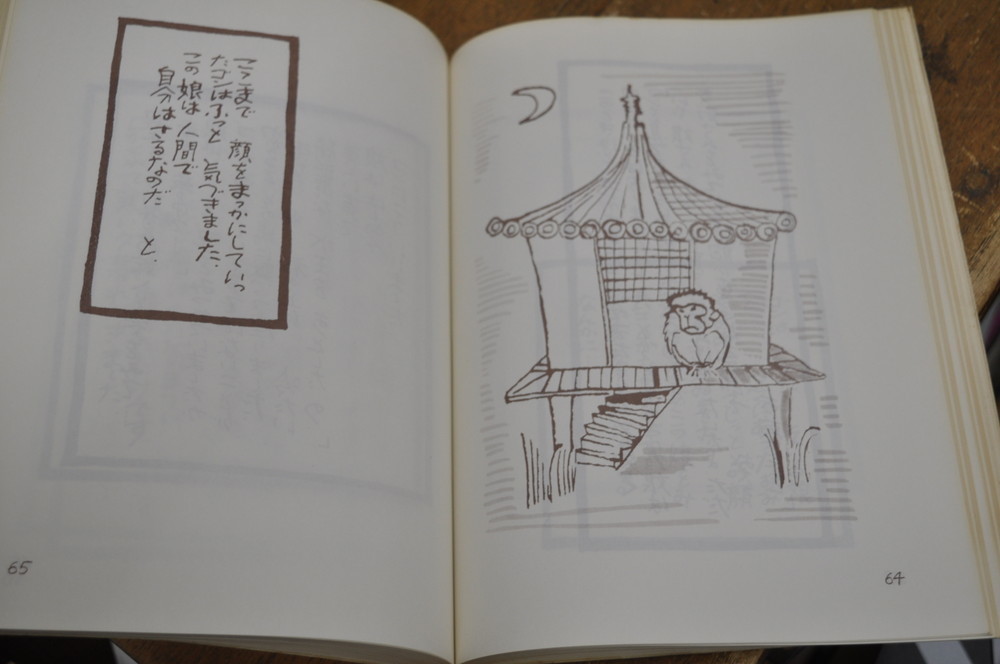 ここまで 顔をまっかにしていっ
たゴンはふっと 気づきました.
この娘は 人間で
自分は さるなのだ と.
65
64